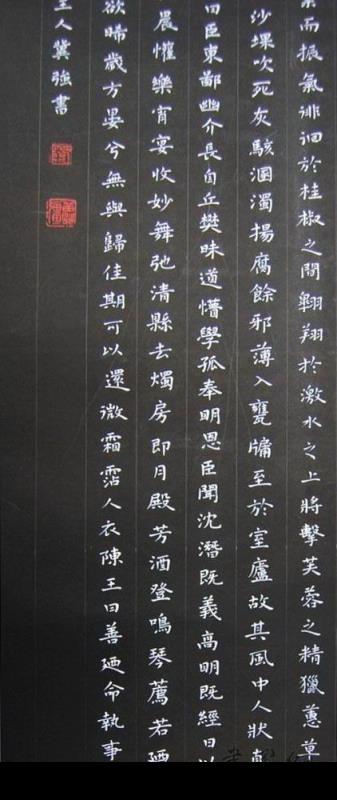 而振氣徘徊於桂椒之間翱翔於激水之上將擊芙蓉之精獵蕙草
沙堁吹死灰駭溷濁揚腐餘邪薄入甕牖至於室廬故其風中人狀
曰臣東鄙幽介長自丘樊昧道懵學孤奉明恩臣聞沈潛既義高明既經日以
晨懽樂宵宴收妙舞弛清縣去燭房即月殿芳酒登鳴琴薦若廼
欲晞歲方晏兮無與歸佳期可以還微霜霑人衣陳王曰善廼命執事
人冀強書